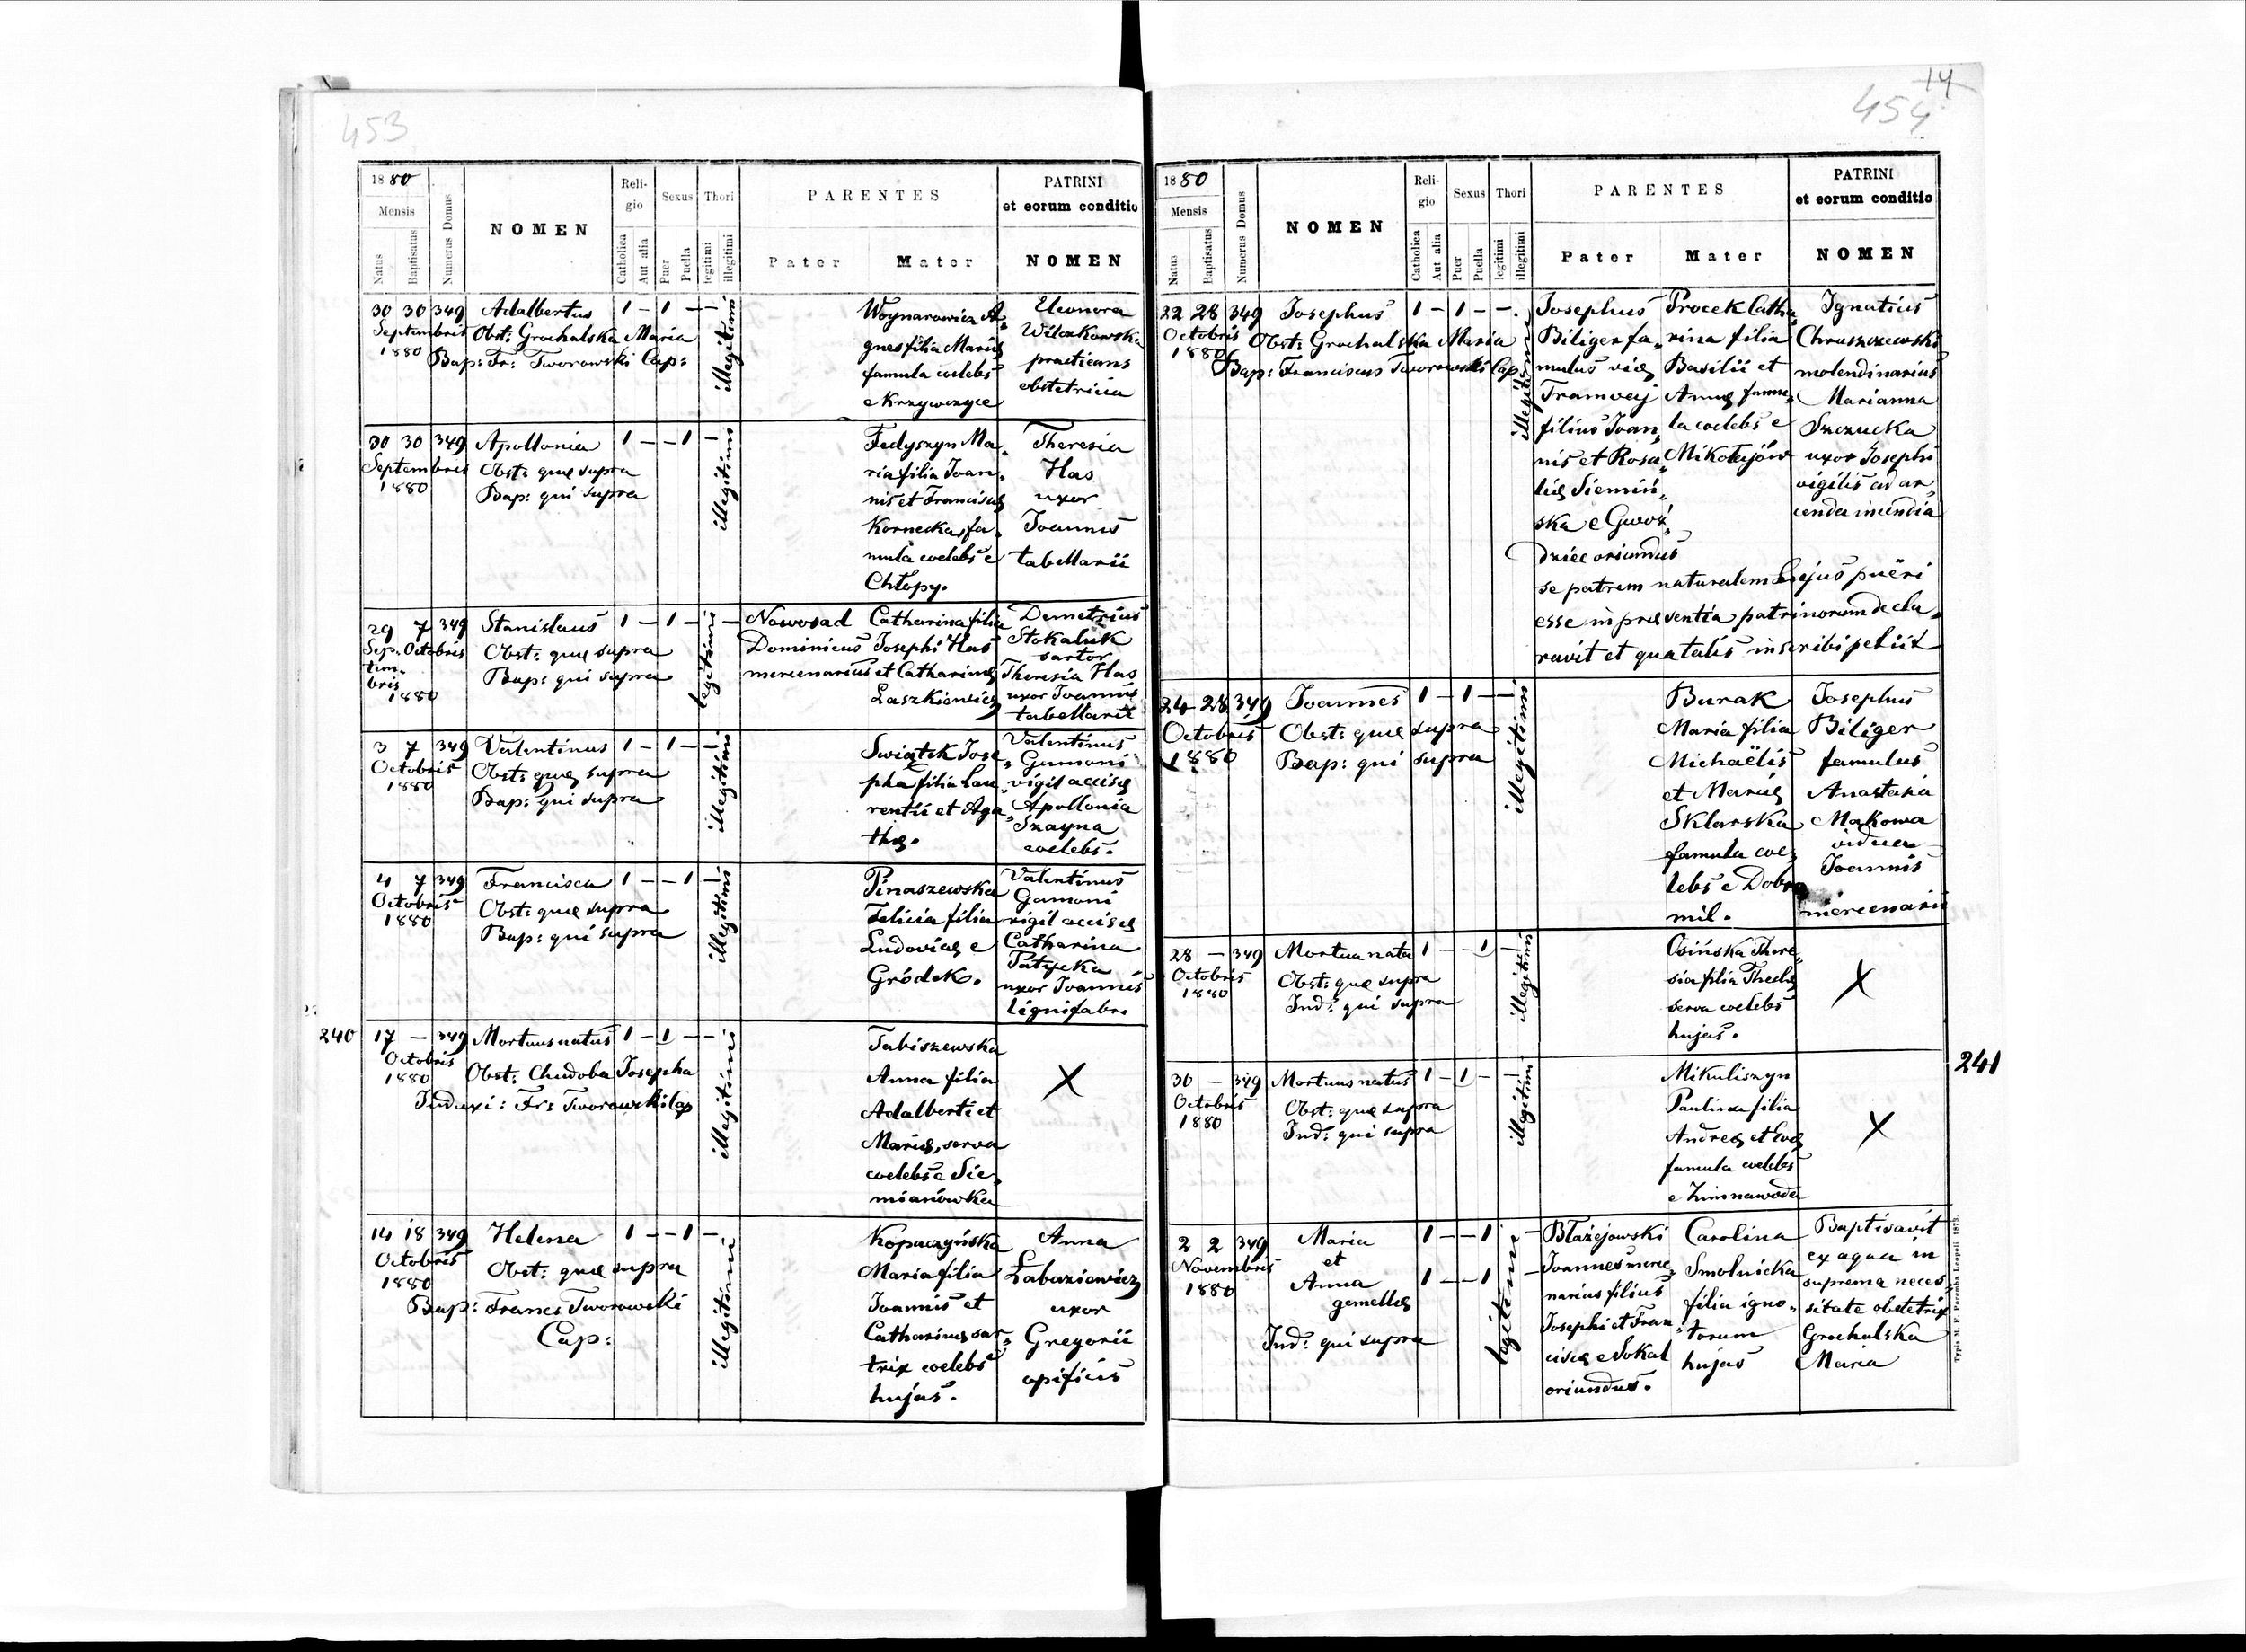 453
1880
Mensis
Natus
Baptisatus
Numerus Domus
NOMEN
Reli-
gio
Catholica
Aut alia
Sexus
Puer
Puella
Thori
legitimi
illegitimi
PARENTES
Pater
Mater
PATRINI
et eorum conditio
NOMEN
30 30 349 Adalbertus 1 – 1 – –
Septembris Obst: Grochalska Maria
1880 Bap: Fr: Tworowski Cap:
illegitimi
Woynarowicz A„
gnes filia Mariæ
famula coelebs
e Krzywczyce
Eleonora
Wilczkowska
practicans
obstetricia
30 30 349 Apollonia 1 – – 1 –
Septembris Obst: quæ supra
1880 Bap: qui supra
illegitimi
Fedyszyn Ma„
ria filia Joan„
nis et Franciscæ
Kornecka, fa„
mula coelebs e
Chłopy.
Theresia
Has
uxor
Joannis
tabellarii
29 7 349 Stanislaus 1 – 1 – –
Sep„ Octobris Obst: quæ supra
tem„
bris Bap: qui supra
1880
legitimi
Nowosad
Dominicus
mercenarius
Catharina filia
Josephi Has
et Catharinæ
Laszkiewicz
Demetrius
Stokaluk
sartor
Theresia Has
uxor Joannis
tabellarii
3 7 349 Valentinus 1 – 1 – –
Octobris Obst: quæ supra
1880 Bap: qui supra
illegitimi
Swiątek Jose„
pha filia Lau„
rentii et Aga„
thæ.
Valentinus
Gamoni
vigil accisæ
Apollonia
Szayna
coelebs.
4 7 349 Francisca 1 – – 1 –
Octobris Obst: quæ supra
1880 Bap: qui supra
illegitimi
Pinaszewska
Felicia filia
Ludovicæ e
Gródek.
Valentinus
Gamoni
vigil accisæ
Catharina
Patycka
uxor Joannis
lignifabri
240
17 – 349 Mortuus natus 1 – 1 – –
Octobris Obst: Chudoba Josepha
1880 Induxi: Fr: Tworowski Cap
illegitimi
Tabiszewska
Anna filia
Adalberti et
Mariæ, serva
coelebs e Sie„
mianówka
X
14 18 349 Helena 1 – – 1 –
Octobris Obst: quæ supra
1880
Bap: Franc: Tworowski
Cap:
illegitimi
Kopaczyńska
Maria filia
Joannis et
Catharinæ sar„
trix coelebs
hujas.
Anna
Łabaziewicz
uxor
Gregorii
opificis
14
454
1880
Mensis
Natus
Baptisatus
Numerus Domus
NOMEN
Reli-
gio
Catholica
Aut alia
Sexus
Puer
Puella
Thori
legitimi
illegitimi
PARENTES
Pater
Mater
PATRINI
et eorum conditio
NOMEN
22 28 349 Josephus 1 – 1 – –
Octobris Obst: Grochalska Maria
1880 Bap: Franciscus Tworowski Cap
illegitimi
Josephus
Biliger fa„
mulus viæ
Tramvey
filius Joan„
nis et Rosa„
liæ Siemiń„
ska e Gwoź„
dziec oriundus
se patrem naturalem hujus puëri
esse in præsentia patrinorum decla„
ravit et qua talis inscribi petiit
Procek Catha„
rina filia
Basilii et
Annæ famu„
la coelebs e
Mikołajów
Ignatius
Chruszczewski
molendinarius
Marianna
Szczucka
uxor Josephi
vigilis ad ar„
cenda incendia
24 28 349 Joannes 1 – 1 – –
Octobris Obst: quæ supra
1880 Bap: qui supra
illegitimi
Burak
Maria filia
Michaëlis
et Mariæ
Sklarska
famula coe„
lebs e Dobro
mil.
Josephus
Biliger
famulus
Anastasia
Makowa
vidua
Joannis
mercenarii
28 – 349 Mortua nata 1 – – 1 –
Octobris Obst: quæ supra
1880 Ind: qui supra
illegitimi
Osińska There„
sia filia Theclæ
serva coelebs
hujas.
X
241
30 – 349 Mortuus natus 1 – 1 – –
Octobris Obst: quæ supra
1880 Ind: qui supra
illegitimi
Mikuliszyn
Paulina filia
Andreæ et Evæ
famula coelebs
e Zimnawoda
X
2 2 349 Maria 1 – – 1 –
Novembris et
1880 Anna 1 – – 1 –
gemellæ
Ind: qui supra
legitimi
Błażejowski
Joannes merce„
narius filius
Josephi et Fran„
ciscæ e Sokal
oriundus.
Carolina
Smolnicka
filia igno„
torum
hujas
Baptisavit
ex aqua in
suprema neces„
sitate obstetrix
Grochalska
Maria
Typis M. F. Poremba Leopoli 1873.